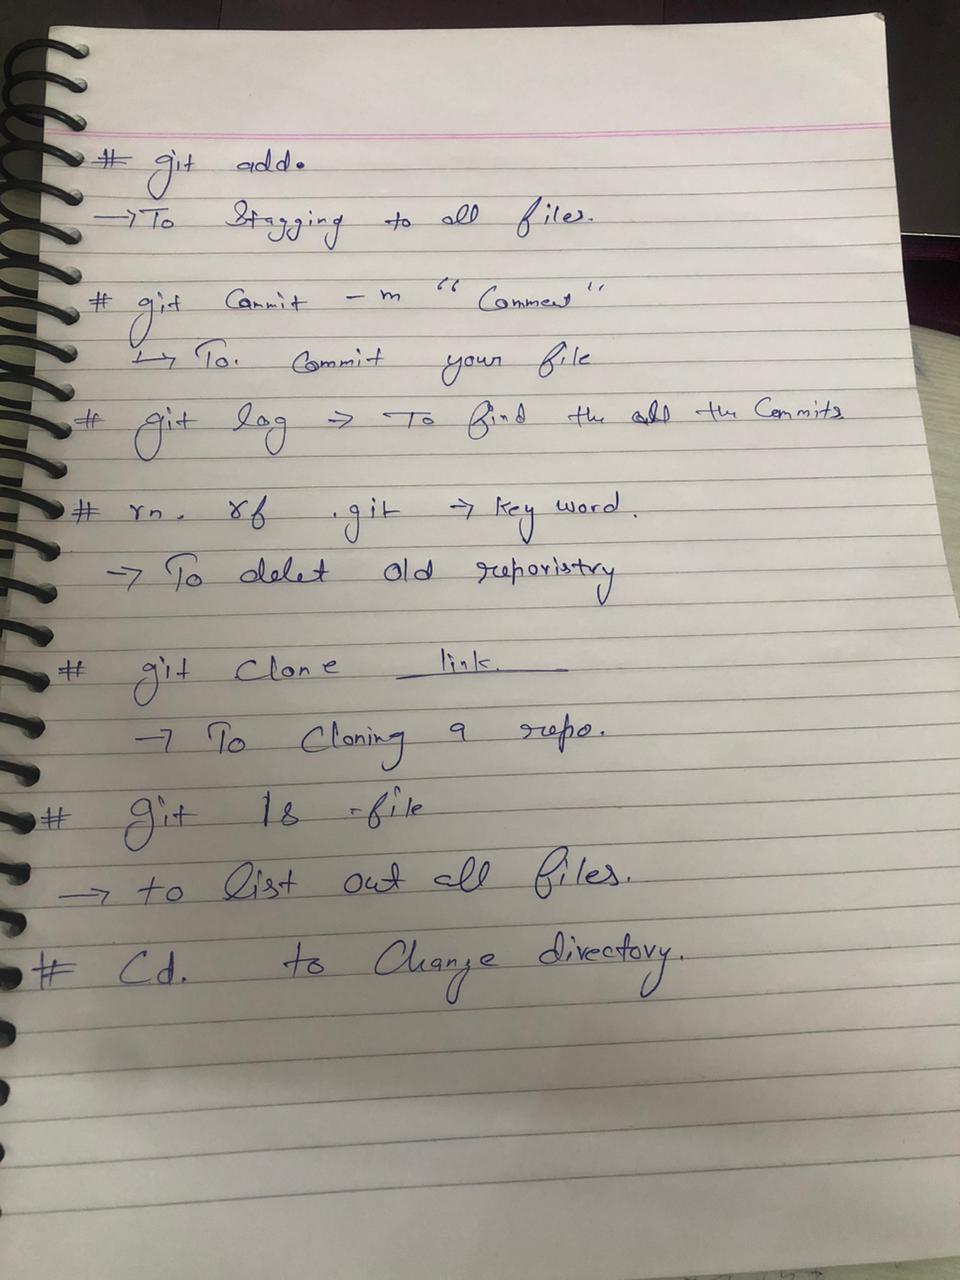 # git add.
→ To Stagging to all files.
# git Commit - m "Comment"
↳ To. Commit your file
# git log → To find the all the Commits
# rn. rf .git → Key word.
→ To delet old reporistry
# git Clone link.
→ To Cloning a repo.
# git ls -file
→ to list out all files.
# Cd. to Change directory.